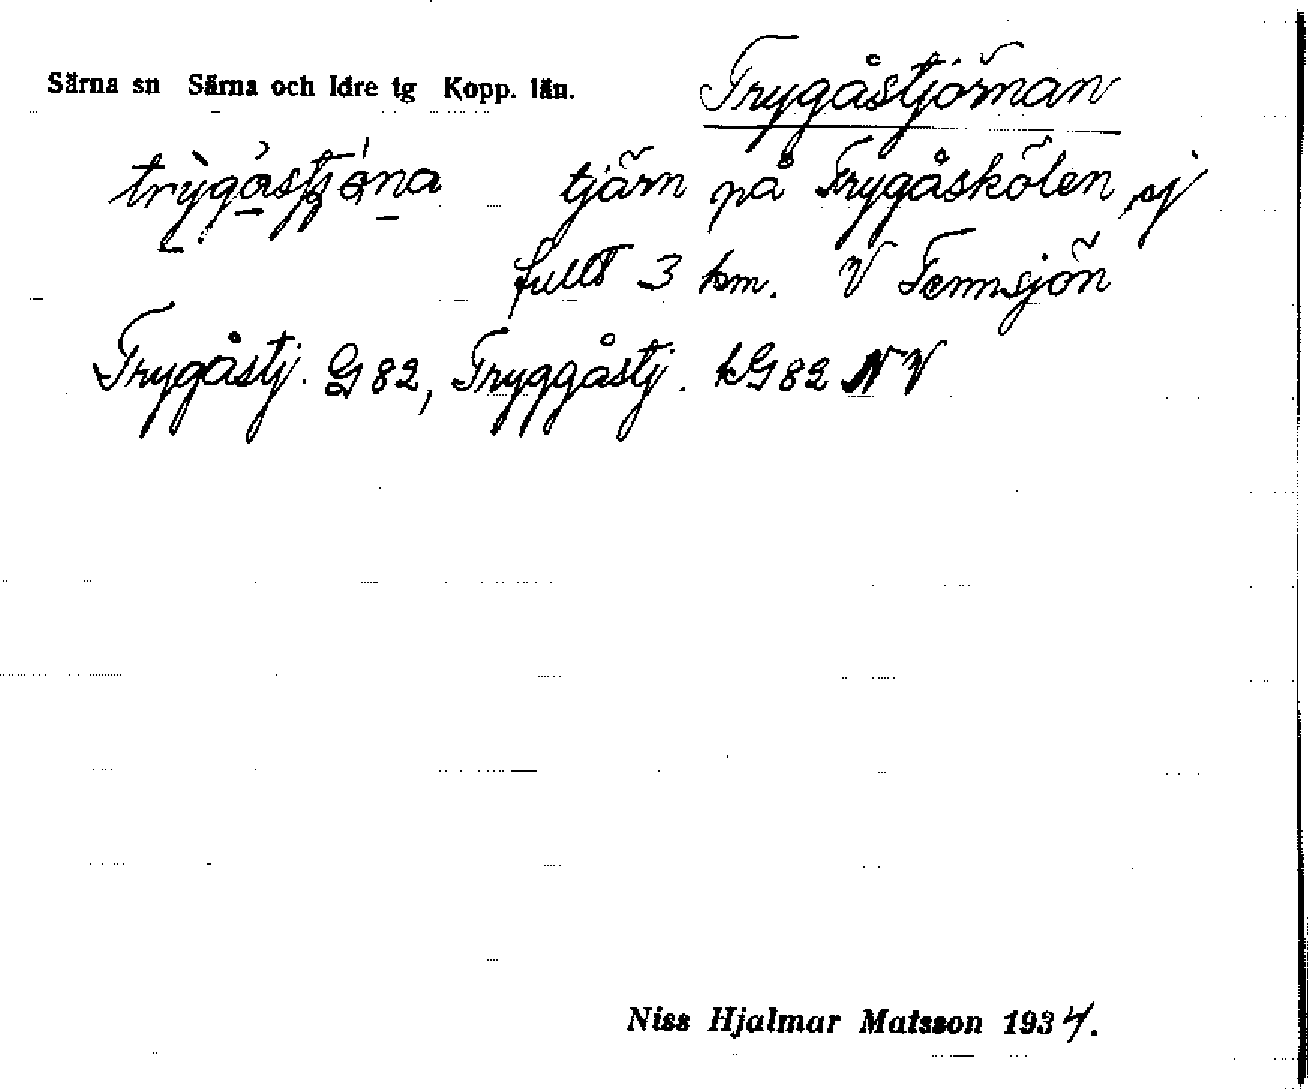 Särna sn Särna och Idre tg Kopp. län.
Trygåstjörnan
trỳgàstjö́na tjärn på Trygåskölen, ej
fullt 3 km. V Femsjön
Trygåstj. G82, Tryggåstj. kG82 NV
Niss Hjalmar Matsson 1934.